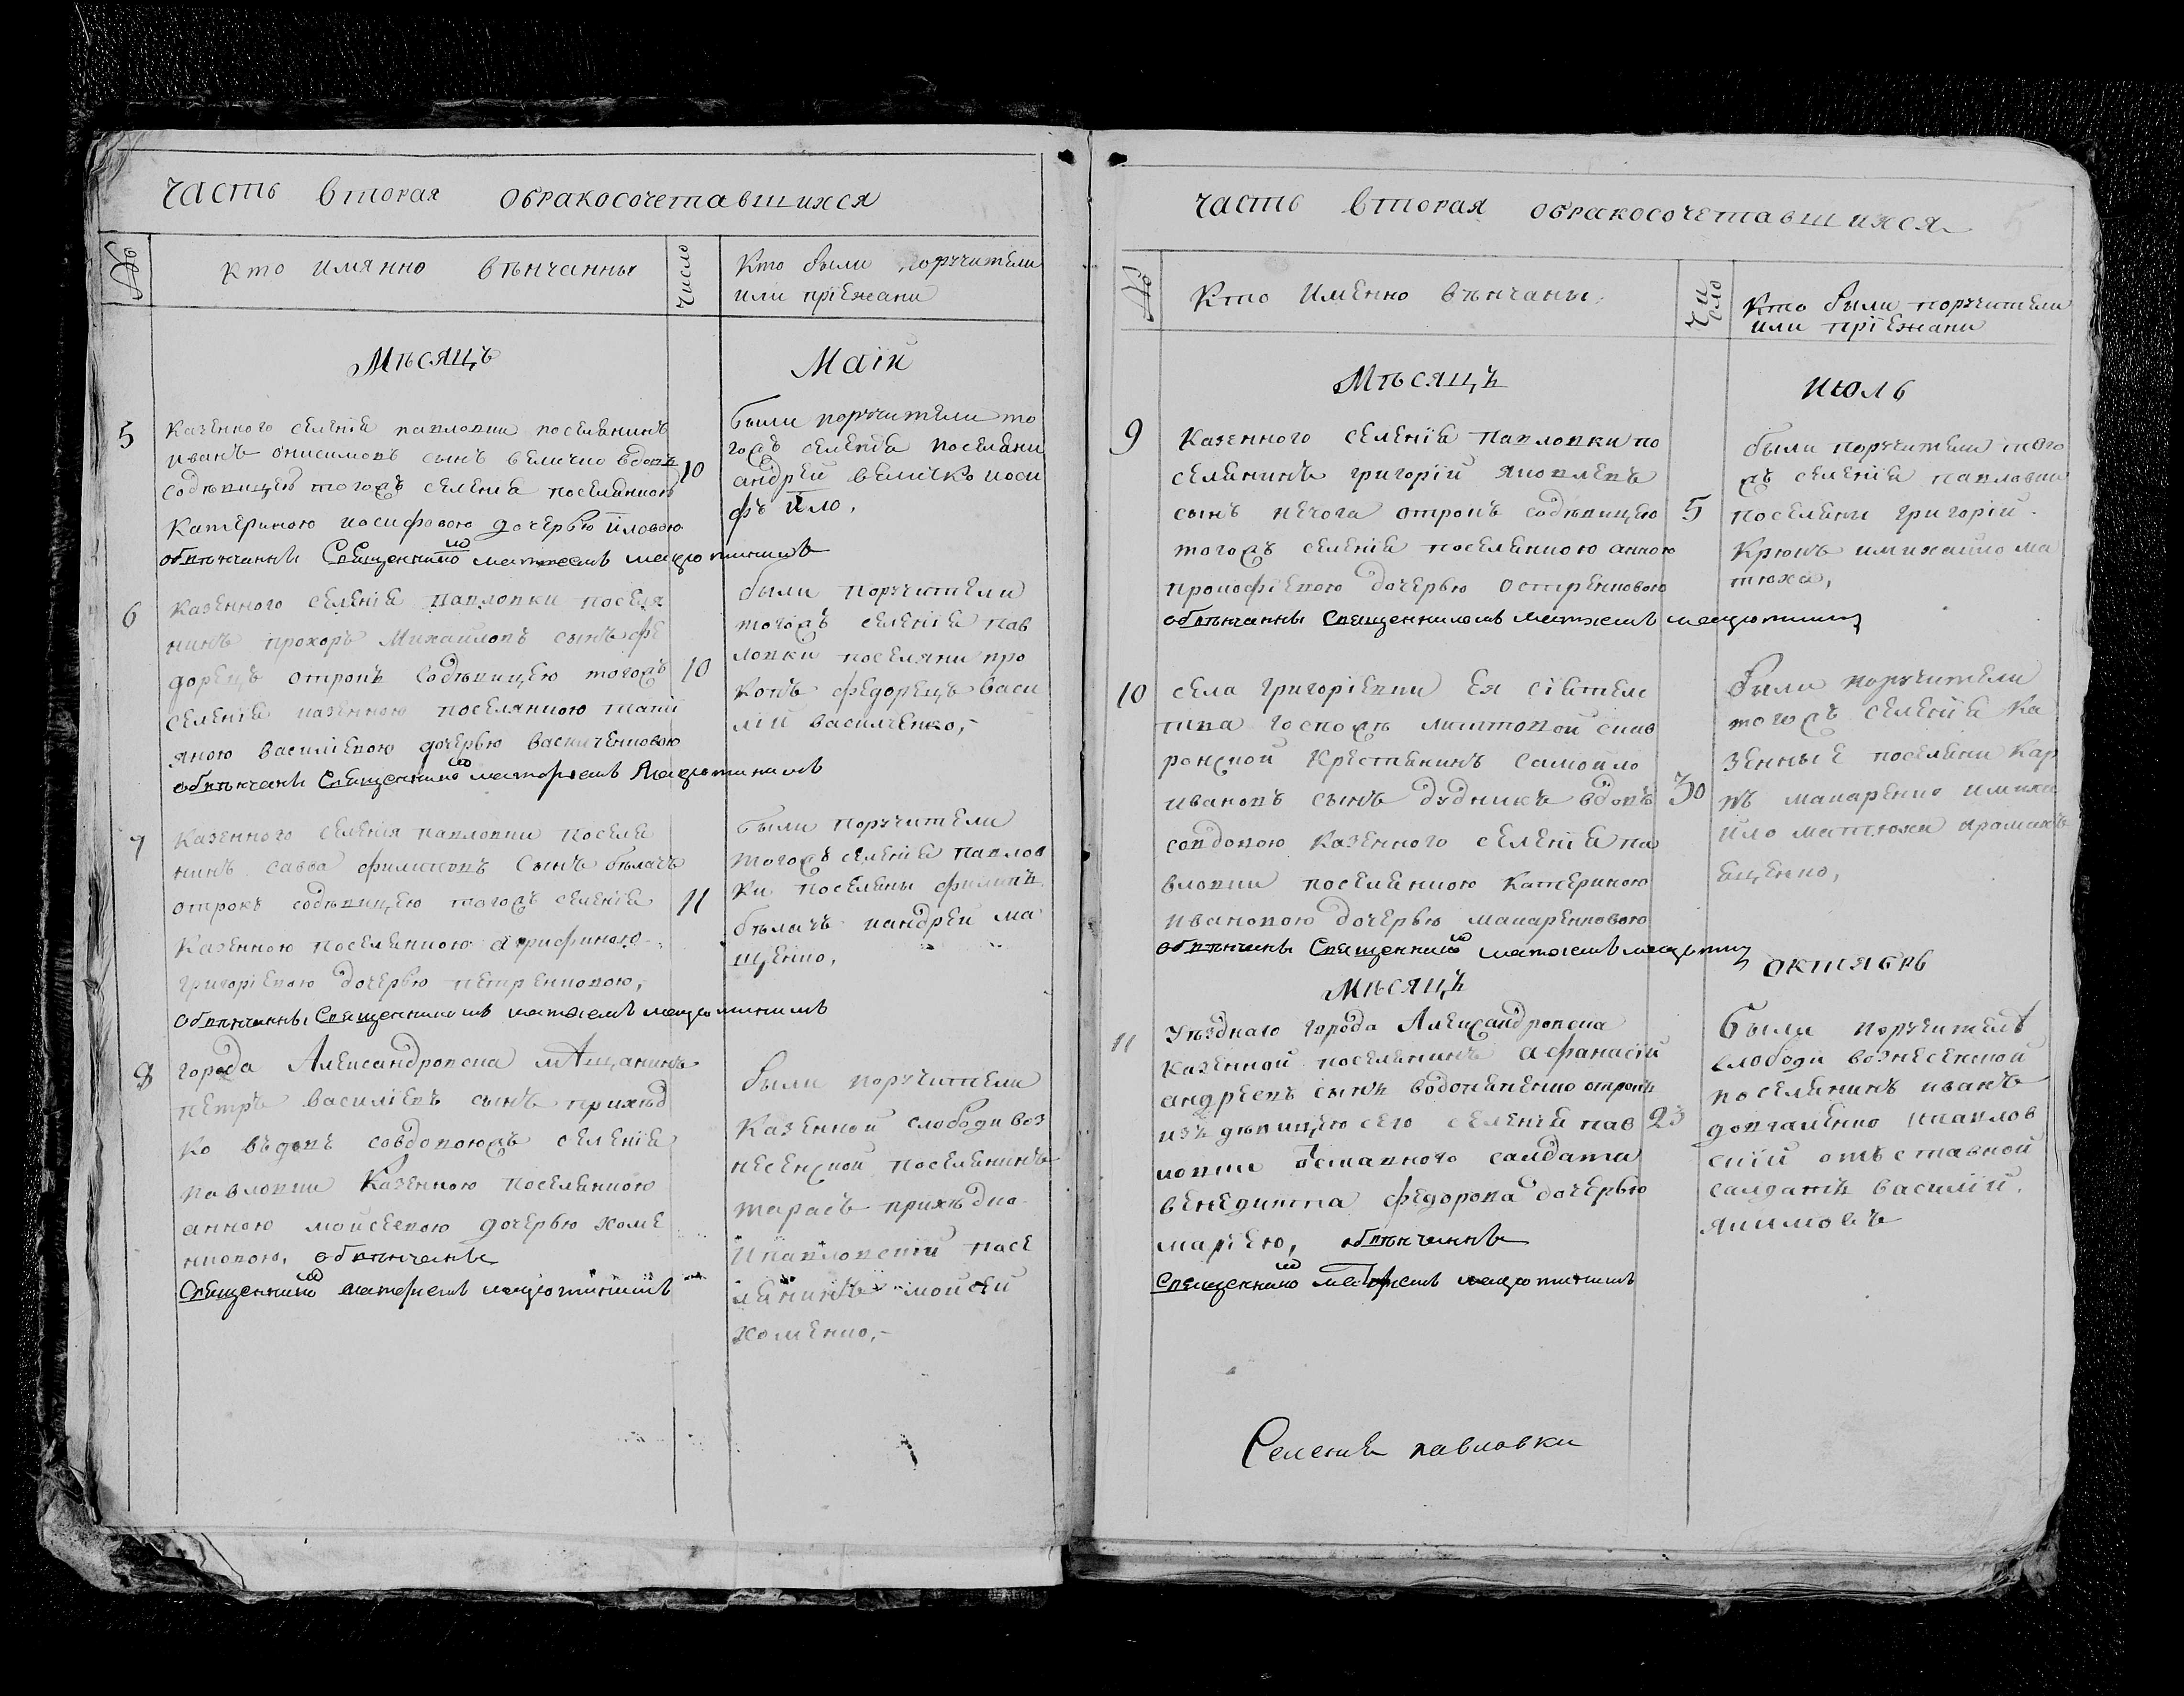 Часть вторая обракосочетавшихся
№
кто имянно вѣнчанны
число
кто были поручители
или приежани
Мѣсяцъ
Маiи
5
Казенного селенiя павловки поселянинъ
иванъ онисимовъ сынъ величко вдовъ
содѣвицею тогожъ селенiя поселянкою
катериною иосифовою дочерью iловою
обвѣнчанны Священникомъ матөеемъ мацютинимъ
10
были поручители то
гожъ селенiя поселяни
андрей величко иоси
фъ iло,
6
Казенного селенiя павловки поселя
нинъ прохоръ Михаиловъ сынъ фе
дорецъ отрокъ содѣвицею тогожъ
селенiя казенною поселянкою тати
яною василiевою дочерью василченковою
обвѣнчаны Священникомъ матфеемъ Мацютинимъ
10
были поручители
тогожъ селенiя пав
ловки поселяни про
копъ федорецъ васи
лiй василченко,-
7
Казенного селенiя павловки поселе
нинъ савва филиповъ сынъ бѣлачъ
отрокъ содѣвицею тогожъ селенiя
казенною поселянкою агрифиною
григорiевою дочерью петренковою,
обвѣнчанны Священникомъ матөеемъ мацютинимъ
11
были поручители
тогожъ селенiя павлов
ки поселяны филипъ
бѣлачъ иандрей ма
щенко,
8
города Александровска мѣщанинъ
петръ василiевъ сынъ прихѣд
ко въдовъ совдовоюжъ селенiя
павловки казенною поселянкою
анною мойсеевою дочерью хоме
нковою, обвѣнчанны
Священникомъ матфеемъ мацютинимъ
были поручители
казенной слободи воз
несенской поселянинъ
тарасъ прихѣдко
iпавловскiй посе
лянинъ мойсей
хоменко,-
Часть вторая обракосочетавшихся
№
Кто именно вѣнчаны
Чи
сло
Кто были поручители
или прiежани
Мѣсяцъ
июль
9
Казенного селенiя павловки по
селянинъ григорiй яковлевъ
сынъ нечога отрокъ содѣвицею
тогожъ селенiя поселянкою анною
прокофiевою дочерью остренковою
обвѣнчанны Священникомъ матөеемъ мацютиним
5
были поручители того
жъ селенiя павловки
поселяни григорiй
Крюкъ имихайло ма
тюха,
10
села григорiевки ея сiятелс
тва госпожѣ
ронской крестянинъ самойло
ивановъ сынъ дудникъ вдовъ
совдовою казенного селенiя па
вловки поселянкою катериною
ивановою дочерью макаренковою
обвѣнчаны Священникомъ матөеемъ мацютин
30
были поручители
тогожъ селенiя ка
зенные поселяни кар
пъ макаренко имиха
йло матюха
ещенко,
Мѣсяцъ
октябрь
11
Уѣзднаго города Александровска
казенной поселянинъ афанасiй
андреевъ сынъ водонянѣнко отрокъ
изъ дѣвицею сего селенiя пав
ловки отставного салдата
венедикта федорова дочерью
марiею, обвѣнчанны
Священникомъ матфеемъ мацютинимъ
23
были поручителѣ
слободи вознесенской
поселянинъ иванъ
довгаленко ипавлов
скiй отъставной
салдатъ василiй
якимовъ
Селенiя павловки